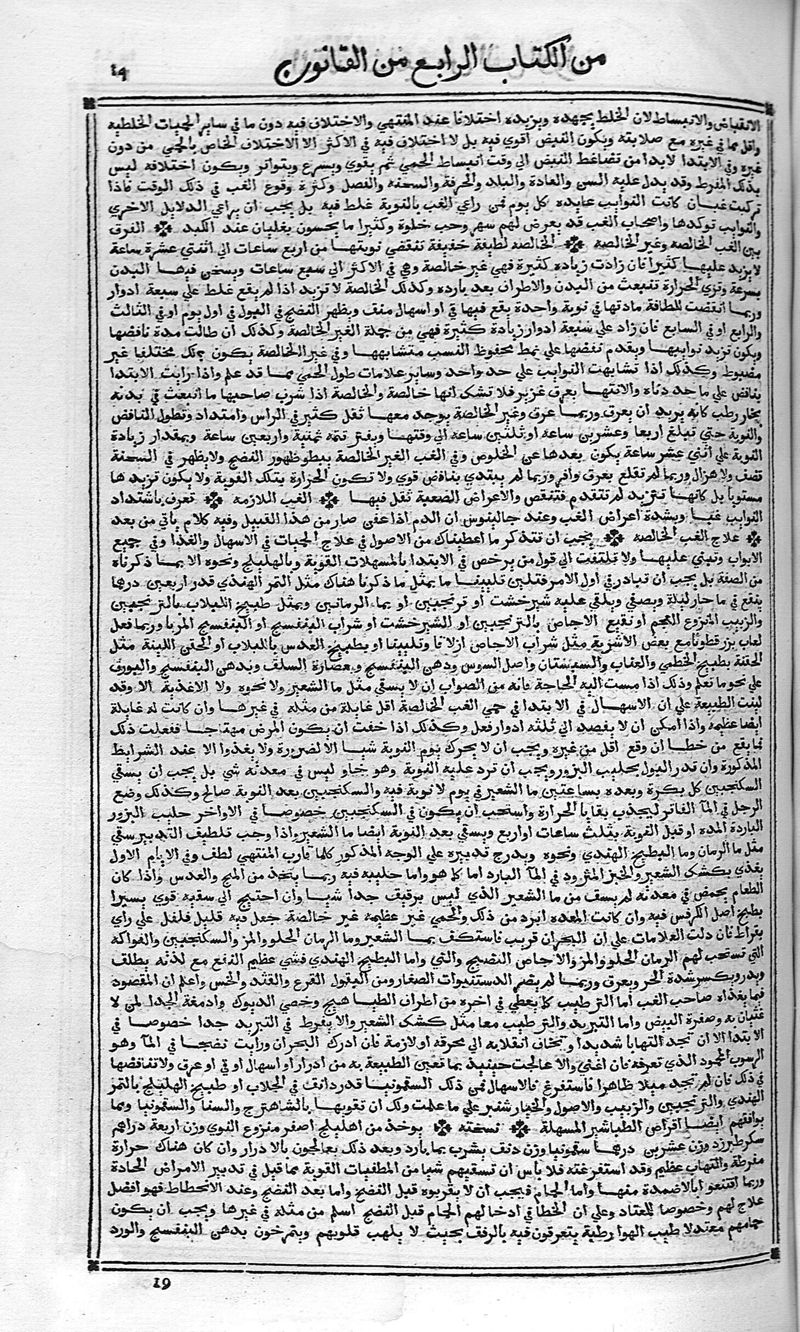 من الكتاب الرابع من القانون
١٩
الانقباض والانبساط لان الخلط يجهده ويزيده اختلافا عند المنتهي والاختلاف فيه دون ما في ساير الحميات الخلطية
واقل مما في غيره مع صلابته ويكون النبض اقوي فيه بل لا اختلاف فيه في الاكثر الا الاختلاف الخاص بالحمي من دون
غيره وفي الابتدا لابدا من تضاغط النبض الي وقت انبساط الحمي ثم يقوي ويسرع ويتواتر ويكون اختلافه ليس
بذلك المفرط وقد يدل عليه السن والعادة والبلد والحرفة والسحنه والفصل وكثرة وقوع الغب في ذلك الوقت فاذا
تركبت غبان كانت النوايب عايده كل يوم فمن راعي الغب بالنوبة غلط فيه بل يجب ان يراعي الدلايل الاخري
والنوايب توكدها واصحاب الغب قد يعرض لهم سهر وحب خلوة وكثيرا ما يحسون بغليان عند الكبد الفرق
بين الغب الخالصة وغير الخالصة الخالصة لطيفة خفيفة تنقضي نوبتها من اربع ساعات الي اثنتي عشرة ساعة
لا يزيد عليها كثيرا فان زادت زيادة كثيرة فهي غير خالصة وهي في الاكثر الي سبع ساعات ويسخن فيها البدن
بسرعة وتري الحرارة تنبعث من البدن والاطراف بعد بارده وكذلك الخالصة لا تزيد اذا لم يقع غلط علي سبعة ادوار
وربما انقضت للطافة مادتها في نوبة واحدة يقع فيها في او اسهال منف ويظهر النضج في البول في اول يوم او في الثالث
والرابع او في السابع فان زاد علي سبعة ادوار زيادة كثيرة فهي من جملة الغير الخالصة وكذلك ان طالت مدة نافضها
ويكون تزيد نوايبها ويقدم نفضها علي نمط محفوظ النسب متشابهها وفي غير الخالصة يكون ذلك مختلفا غير
مضبوط وكذلك اذا تشابهت النوايب علي حد واحد وساير علامات طول الحمي مما قد علم واذا رايت الابتدا
بنافض علي ما حددناه والانتها بعرق غزير فلا تشك انها خالصة والخالصة اذا شرب صاحبها ما انبعث في بدنه
بخار رطب كانه يريد ان يعرق وربما عرق وغير الخالصة يوجد معها ثقل كثير في الراس وامتداد وتطول النافض
والنوبة حتي تبلغ اربعا وعشرين ساعة او ثلثين ساعه الي وقتها ويفتر تتمه ثمنية واربعين ساعة وبمقدار زيادة
النوبة علي اثني عشر ساعة يكون بعدها عن الخلوص وفي الغب الغير الخالصة يبطو ظهور النضج ولا يظهر في السحنة
قضف ولا هزال وربما لم تقلع بعرق وافر وربما لم يبتدي بنافض قوي ولا تكون الحرارة بتلك القوية ولا يكون تزيد ها
مستويا بل كانها تتزيد ثم تتقدم فتنقص والاعراض الصعبة تقل فيها الغب اللازمه تعرف باشتداد
النوايب غبا وبشدة اعراض الغب وعند جالينوس ان الدم اذا عفن صار من هذا القبيل وفيه كلام ياتي من بعد
علاج الغب الخالصة يجب ان تتذكر ما اعطيناك من الاصول في علاج الحميات في الاسهال والغذا وفي جميع
الابواب وتبني عليها ولا تلتفت الي قول من يرخص في الابتدا بالمسهلات القوية وبالهليلج ونحوه الا بما ذكرناه
من الصفة بل يجب ان تبادر في اول الامر فتلين تليينا ما بمثل ما ذكرنا هناك مثل التمر الهندي قدر اربعين درهما
ينقع في ما حار ليلة ويصفي ويلقي عليه شيرخشت او ترنجبين او بما الرمانين وبمثل طبيخ اللبلاب بالترنجبين
والزبيب المنزوع العجم او نقيع الاجاص بالترنجبين او الشيرخشت او شراب البنفسج او البنفسج المربا وربما فعل
لعاب بزر قطونا مع بعض الاشربة مثل شراب الاجاص ازلاقا وتليينا او بطبيخ العدس باللبلاب او الحقن اللينة مثل
الحقنة بطبيخ الخطمي والعناب والسبستان واصل السوس ودهن البنفسج وعصارة السلق وبدهن البنفسج والبورق
علي نحو ما تعلم وذلك اذا مست اليه الحاجة فانه من الصواب ان لا يسقي مثل ما الشعير ولا نحوه ولا الاغذية الا وقد
لينت الطبيعة علي ان الاسهال في الابتدا في حمي الغب الخالصة اقل غايلة من مثله في غيرها وان كانت له غايلة
ايضا عظيمة واذا امكن ان لا يقصد الي ثلثه ادوار فعل وكذلك اذا خفت ان يكون المرض مهتاجا ففعلت ذلك
فما يقع من خطا ان وقع اقل من غيره ويجب ان لا يحرك يوم النوبة شيا الا لضرورة ولا يغذوا الا عند الشرايط
المذكورة وان تدر البول بحليب البزور ويجب ان ترد عليه النوبة وهو خاو ليس في معدته شي بل يجب ان يسقي
السكنجبين كل بكرة وبعده بساعتين ما الشعير في يوم لا نوبة فيه والسكنجبين بعد النوبة صالح وكذلك وضع
الرجل في المآ الفاتر ليجذب بقايا الحرارة واستحب ان يكون في السكنجبين خصوصا في الاواخر حليب البزور
الباردة المدرة او قبل النوبة بثلث ساعات او اربع ويسقي بعد النوبة ايضا ما الشعير واذا وجب تلطيف التدبير سقي
مثل ما الرمان وما البطيخ الهندي ونحوه ويدرج تدبيره علي الوجه المذكور كلما قارب المنتهي لطف وفي الايام الاول
يغذي بكشك الشعير والخبز المثرود في المآ البارد اما كما هو واما حليبه فيه ربما يتخذ من المج والعدس واذا كان
الطعام يحمض في معدته لم يسق من ما الشعير الذي ليس برقيق جدا شيا وان احتيج الي سقيه قوي يسيرا
بطبيخ اصل الكرفس فيه وان كانت المعده ابرد من ذلك والحمي غير عظيمه غير خالصة جعل فيه قليل فلفل علي راي
بقراط فان دلت العلامات علي ان البحران قريب فاستكف بما الشعير وما الرمان الحلو والمز والسكنجبين والفواكه
التي تستحب لهم الرمان الحلو والمز والاجاص النضيج والني واما البطيخ الهندي فشي عظيم النفع مع لذته يطلق
ويدر ويكسر شدة الحر ويعرق وربما لم يضر الدستنبوات الصغار ومن البقول القرع والقثد والخس واعلم ان المقصود
فيما يغذاه صاحب الغب اما الترطيب كما يعطي في اخره من اطراف الطياهيج وخصي الديوك وادمغة الجدا لمن لا
غثيان به وصفرة البيض واما التبريد والترطيب معا مثل كشك الشعير ولا يفرط في التبريد جدا خصوصا في
الابتدا الا ان تجد التهابا شديدا وتخاف انقلابه الي محرقه او لازمة فان ادرك البحران ورايت نضجا في المآ وهو
الرسوب المحمود الذي تعرفه فان اغني والا عالجت حينيد بما تعين الطبيعة به من ادرار او اسهال او في او عرق ولا تناقضها
في ذلك فان لم تجد ميلا ظاهرا فاستفرغ فالاسهال فمن ذلك السقمونيا قدر دانق في الجلاب او طبيخ الهليلج بالتمر
الهندي والترنجبين والزبيب والاصول والخيار شنبر علي ما علمت ولك ان تقويها بالشاهترج والسنا والسقمونيا ومما
يوافقهم ايضا اقراص الطباشير المسهلة نسخته يوخذ من اهليلج اصفر منزوع النوي وزن اربعة دراهم
سكر طبرزد وزن عشرين درهما سقمونيا وزن دنف يشرب بما بارد وبعد ذلك يعالجون بالادرار وان كان هناك حرارة
مفرطة والتهاب عظيم وقد استفرغته فلا باس ان تسقيهم شيا من المطفيات القوية مما قيل في تدبير الامراض الحادة
وربما اقتنعوا بالاضمدة منها واما الحمام فيجب ان لا يقربوه قبل النضج واما بعد النضج وعند الانحطاط فهو افضل
علاج لهم وخصوصا للمعتاد وعلي ان الخطا في ادخالهم الحمام قبل النضج اسلم من مثله في غيرها ويجب ان يكون
حمامهم معتدلا طيب الهوا رطبه يتعرقون فيه بالرفق بحيث لا يلهب قلوبهم ويتمرخون بدهن البنفسج والورد
19